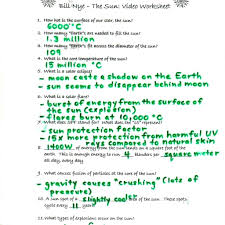 Bill Nye - The Sun: Video Worksheet
1. How hot is the surface of our star, the sun?
6000°C
2. How many "Earths" are needed to fill the sun?
1.3 million
3. How many "Earths" fit across the diameter of the sun?
109
4. What is the core temperature of the sun?
15 million °C
5. What is a solar eclipse?
- moon casts a shadow on the Earth
- sun seems to disappear behind moon
6. What is a solar flare?
- burst of energy from the surface of
the sun (explosion)
- flares burn at 10,000 °C
7. What does SPF stand for? What does the "15" represent?
- sun protection factor
- 15x more protection from harmful UV
rays compared to natural skin
8. 1400W of energy from the sun
earth. This is enough energy to run 4 blenders per square meter
all day, every day.
9. What causes fusion of particles at the core of the sun?
- gravity causes "crushing" (lots of
pressure)
10. A sun spot is a slightly cooler area of the sun. These spots
cycle every 11 years.
11. What types of explosions occur on the sun?